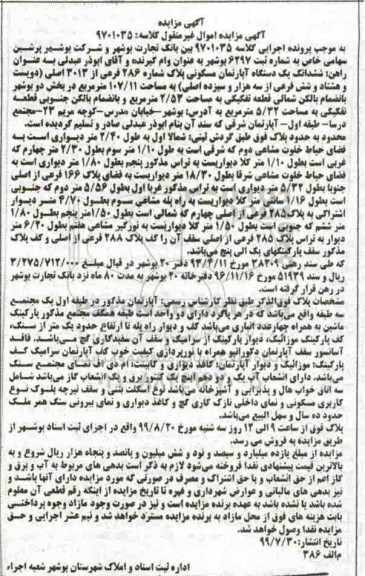 آگهی مزایده
آگهی مزایده اموال غیرمنقول کلاسه: ۹۷۰۱۰۳۵
به موجب پرونده اجرایی کلاسه ۹۷۰۱۰۳۵ بین بانک تجارت بوشهر و شرکت بوشهر پرشین
سهامی خاص به شماره ثبت ۶۲۹۷ بوشهر به عنوان وام گیرنده و آقای ابوذر عبدلی به عنوان
راهن: ششدانگ یک دستگاه آپارتمان مسکونی پلاک شماره ۲۸۶ فرعی از ۳۰۱۳ اصلی (دویست
و هشتاد و شش فرعی از سه هزار و سیزده اصلی) به مساحت ۱۰۷/۱۱ مترمربع در بخش دو بوشهر
بانضمام بالکن شمالی قطعه تفکیکی به مساحت ۲/۵۳ مترمربع و بانضمام بالکن جنوبی قطعه
تفکیکی به مساحت ۵/۳۲ مترمربع به آدرس: بوشهر-خیابان مدرس-کوچه مریم ۲۳-مجتمع
درسا- طبقه اول- آپارتمان شرقی که سند آن بنام ابوذر عبدلی صادر و تسلیم گردیده است.
محدود به حدوده پلاک فوق طبق گردش ثبتی: شمالا اول به طول ۲/۴۰ متر دیواری است به
فضای حیاط خلوت مشاعی دوم که شرقی است به طول ۱/۱۰ متر سوم بطول ۲/۳۰ متر چهارم که
غربی است بطول ۱/۱۰ متر کلا دیواریست به تراس مذکور پنجم بطول ۱/۸۰ متر دیواری است به
فضای حیاط خلوت مشاعی شرقا بطول ۱۸/۳۰ متر دیواریست به فضای پلاک ۱۶۶ فرعی از اصلی
جنوبا بطول ۵/۳۲ متر دیواری است به تراس مذکور غربا اول بطول ۵/۵۶ متر دوم که جنوبی
است بطول ۰/۱۶ سانتی متر کلا دیواریست به راه پله مشاعی سوم بطول ۴/۷۰ متر دیوار
اشتراکی به پلاک ۲۸۵ فرعی از اصلی چهارم که شمالی است بطول ۱/۵۰ متر پنجم بطول ۱/۸۰
متر ششم که جنوبی است بطول ۱/۵۰ متر کلا دیواریست به نورگیر مشاعی هفتم بطول ۶/۲۰ متر
دیوار به تراس پلاک ۲۸۵ فرعی از اصلی سقف آن را کف پلاک ۲۸۸ فرعی از اصلی و کف پلاک
مذکور سقف پارکینگهای یک الی پنج می‌باشد.
که طی سند رهنی ۳۸۲۰۹ مورخ ۹۳/۶/۱۱ دفتر ۲۰ بوشهر در قبال مبلغ ۳/۲۷۵/۷۱۲/۰۰۰
ریال و سند ۵۱۹۳۹ مورخ ۹۶/۱۱/۱۶ دفترخانه ۲۰ بوشهر به مدت ۸۰ ماه نزد بانک تجارت بوشهر
در رهن قرار گرفته است.
مشخصات پلاک فوق‌الذکر طبق نظر کارشناس رسمی: آپارتمان مذکور در طبقه اول یک مجتمع
سه طبقه واقع می‌باشد که در هر پاگرد دارای دو واحد است طبقه همکف مجتمع مذکور پارکینگ
ماشین به همراه چهارعدد انباری می‌باشد کف و دیوار راه پله تا ارتفاع حدود یک متر از سنگ،
کف پارکینگ موزائیک، دیوار پارکینگ از سرامیک و سقف آن سفیدکاری گچ می‌باشد. فاقد
آسانسور سقف آپارتمان دکوراتیو همراه با نورپردازی کیفیت خوب کف آپارتمان سرامیک کف
پارکینگ: موزائیک و دیوار آپارتمان: کاغذ دیواری و کابینت: ام دی اف نمای مجتمع سنگ
می‌باشد. دارای انشعاب آب یک و دو دهم اینچ یک کنتور برق و یک انشعاب گاز می‌باشد شامل
سه اتاق خواب هال و پذیرایی و آشپزخانه می‌باشد نوع اسکلت بتنی و سقف تیرچه بلوک نوع
کاربری مسکونی و نمای داخلی نازک کاری گچ و کاغذ دیواری و نمای بیرونی سنگ همر ملک
حدود ده سال و سهل البیع می‌باشد.
پلاک فوق از ساعت ۹ الی ۱۲ روز سه شنبه مورخ ۹۹/۸/۲۰ واقع در اجرای ثبت اسناد بوشهر از
طریق مزایده به فروش می رسد.
مزایده از مبلغ یازده میلیارد و سیصد و نود و شش میلیون و پانصد و پنجاه هزار ریال شروع و به
بالاترین قیمت پیشنهادی نقدا فروخته می‌شود لازم به ذکر است بدهی های مربوط به آب و برق و
گاز اعم از حق انشعاب و یا حق اشتراک و مصرف در صورتی که مورد مزایده دارای آنها باشد و
نیز بدهی های مالیاتی و عوارض شهرداری و قیره تا تاریخ مزایده از اینکه رقم قطعی آن معلوم
شده باشد یا نشده باشد به عهده برنده مزایده است و نیز در صورت وجود مازاد وجوه پرداختی
بابت هزینه های فوق از محل مازاد به برنده مزایده مسترد خواهد شد و نیم عشر اجرایی و حق
مزایده نقدا وصول خواهد شد.
تاریخ انتشار: ۹۹/۷/۳۰
م‌الف ۳۸۶
اداره ثبت اسناد و املاک شهرستان بوشهر شعبه اجراء